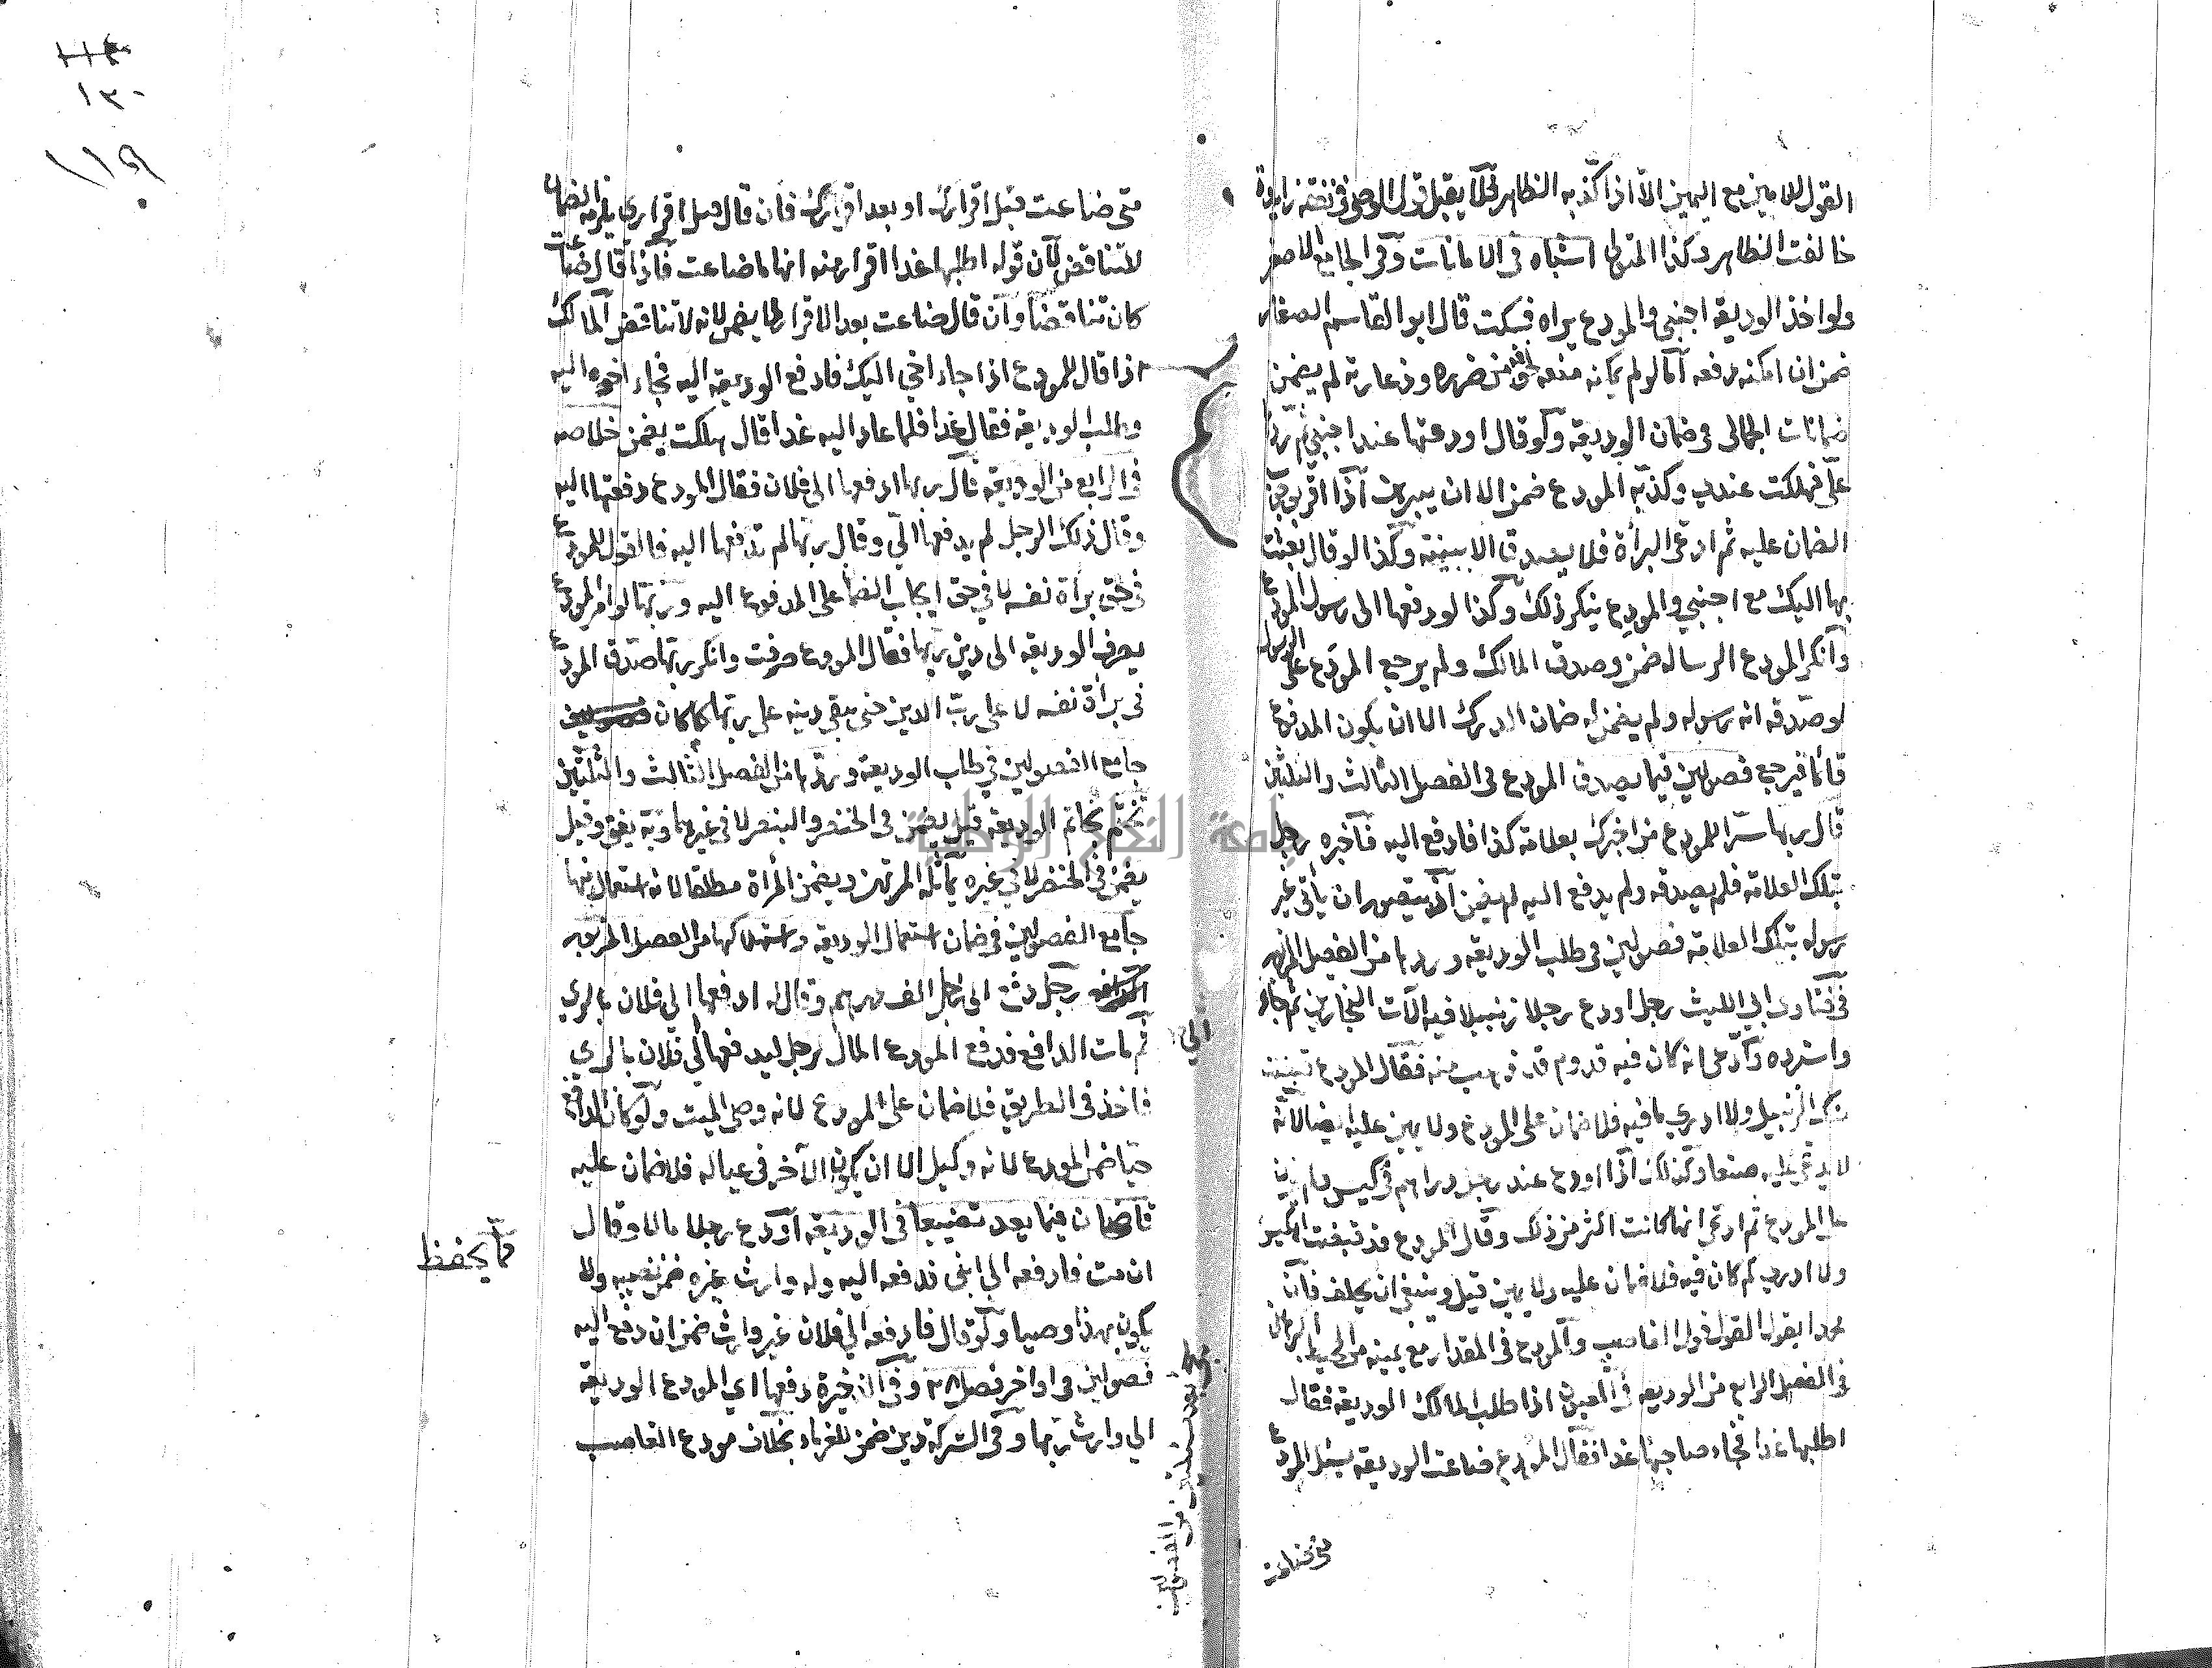 القول للامين مع اليمين الا اذا كذبه الظاهر فلا يقبل قول الوصى فى نفقة زايدة
خالفت الظاهر وكذا المتولى اشباه فى الامانات وفى الجامع الاصغر
ولو اخذ الوديعة اجنبى والمودع يراه فسكت قال ابو القاسم الصفار
ضمن ان امكنه دفعه اما لو لم يمكنه منعه لخوفه من ضرره وذعارته لم يضمن
ضمانات الجمالى فى ضمان الوديعة ولو قال اودعتها عند اجنبى ثم ردها
على فهلكت عندى وكذبه المودع ضمن الا ان يبرهن اذا اقر بوجوب
الضمان عليه ثم ادعى البرأة فلا يصدق الا ببينة وكذا لو قال بعثت
بها اليك مع اجنبي والمودع ينكر ذلك وكذا لو دفعها الى رسول المودع
وانكر المودع الرسالة ضمن وصدق المالك ولم يرجع المودع على الرسول
لو صدقه انه رسوله ولم يضمن له ضمان الدرك الا ان يكون المدفوع
قائما فيرجع فصولين فيما يصدق المودع فى الفصل الثالث والثلثين
قال ربها سرا للمودع من اخبرك بعلامة كذا فادفع اليه فاخبره رجل
بتلك العلامة فلم يصدقه ولم يدفع اليه لم يضمن اذ يتصور ان يأتى غير
رسوله بتلك العلامة فصولين فى طلب الوديعة وردها من الفصل المزبور
فى فتاوى ابى الليث رجل اودع رجلا زنبيلا فيه آلات النجارين ثم جاء
واسترده وادعى انه كان فيه قدوم قد ذهب منه فقال المودع قبضت
منك الزنبيل ولا ادري ما فيه فلا ضمان على المودع ولا يمين عليه ايضا لانه
لا يدعى عليه صنعا وكذلك اذا اودع عند رجل دراهم فى كيس ولم يزن
على المودع ثم ادعى انها كانت اكثر من ذلك وقال المودع قد قبضت الكيس
ولا ادرى كم كان فيه فلا ضمان عليه ولا يمين قيل وينبغى ان يحلف فان
محمدا يقول القول قول الغاصب والمودع فى المقدار مع يمينه من المحيط البرهانى
فى الفصل الرابع من الوديعة فى العيون اذا طلب المالك الوديعة فقال
اطلبها غدا فجاء صاحبها غدا فقال المودع ضاعت الوديعة يسئل المودع
متى ضاعت
متى ضاعت قبل اقرارك او بعد اقرارك فان قال قبل اقرارى يلزمه الضمان
للتناقض لان قوله اطلبها غدا اقرار منه انها ما ضاعت فاذا قال ضاعت
كان تناقضا وان قال ضاعت بعد الاقرار لا يضمن لانه لا تناقض المالك
اذا قال للمودع اذا جاء اخي اليك فادفع الوديعة اليه فجاء اخوه اليه
وطلب الوديعة فقال غدا فلما عاد اليه غدا قال هلكت يضمن خلاصه
فى الرابع من الوديعة قال ربها ادفعها الى فلان فقال المودع دفعتها اليه
وقال ذلك الرجل لم يدفعها الى وقال ربها لم تدفعها اليه فالقول للمودع
فى حق براة نفسه لا في حق ايجاب الضمان على المدفوع اليه وربها لو امر المودع
يصرف الوديعة الى دين ربها فقال المودع صرفت وانكر ربها صدق المودع
فى برأة نفسه لا على رب الدين حتى يبقى دينه على ربها كما كان
جامع الفصولين في طلب الوديعة وردها من الفصل الثالث والثلثين
تختم بخاتم الوديعة قيل يضمن فى الخنصر والبنصر لا فى غيرهما وبه يفتى وقيل
يضمن فى الخنصر لا فى غيره كما لمرتهن ويضمن المرأة مطلقا لانه استعمال منها
جامع الفصولين فى ضمان استعمال الوديعة واستهلاكها من الفصل المزبور
رجل دفع الى رجل الف درهم وقال له ادفعها الى فلان بالرى
ثم مات الدافع فدفع المودع المال لرجل ليدفعها الى فلان بالرى
فاخذ فى الطريق فلا ضمان على المودع لانه وصى الميت ولو كان الدافع
حيا ضمن المودع لانه وكيل الا ان يكون الآخر فى عياله فلا ضمان عليه
قاضخان فيما يعد تضييعا فى الوديعة اودع رجلا مالا وقال
ان مت فادفعه الى ابنى فدفعه اليه وله وارث غيره ضمن نصيبه ولا
يكون بهذا وصيا ولو قال فادفعه الى فلان غير وارث ضمن ان دفع اليه
فصولين فى اواخر فصل ٢٨ وفى الذخيرة دفعها اي المودع الوديعة
الى وارث ربها وفى التركة دين ضمن للغرماء بخلاف مودع الغاصب
مما يحفظ
الى
١٣٠
١١٩
جامعة النجاح الوطنية